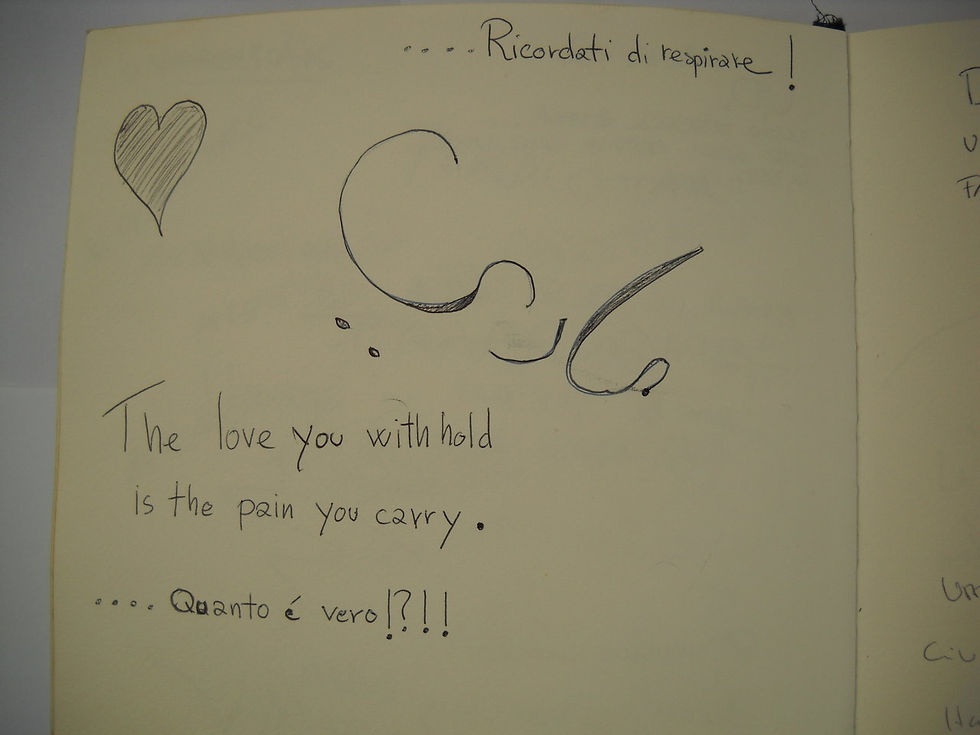 ....Ricordati di respirare!
The love you withhold
is the pain you carry.
....Quanto é vero!?!!